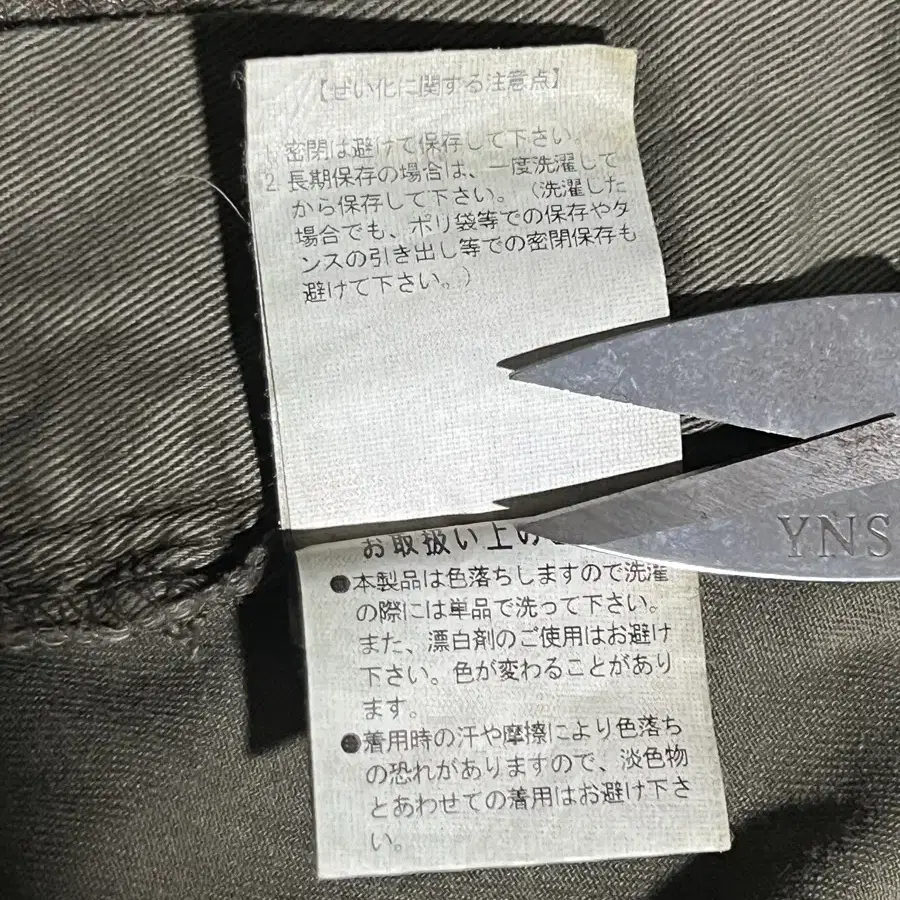 【ぜい化に関する注意点】
1. 密閉は避けて保存して下さい。
2. 長期保存の場合は、一度洗濯して
から保存して下さい。（洗濯した
場合でも、ポリ袋等での保存やタ
ンスの引き出し等での密閉保存も
避けて下さい。）
お取扱い上の
●本製品は色落ちしますので洗濯
の際には単品で洗って下さい。
また、漂白剤のご使用はお避け
下さい。色が変わることがあり
ます。
●着用時の汗や摩擦により色落ち
の恐れがありますので、淡色物
とあわせての着用はお避け下さ
い。
YNS